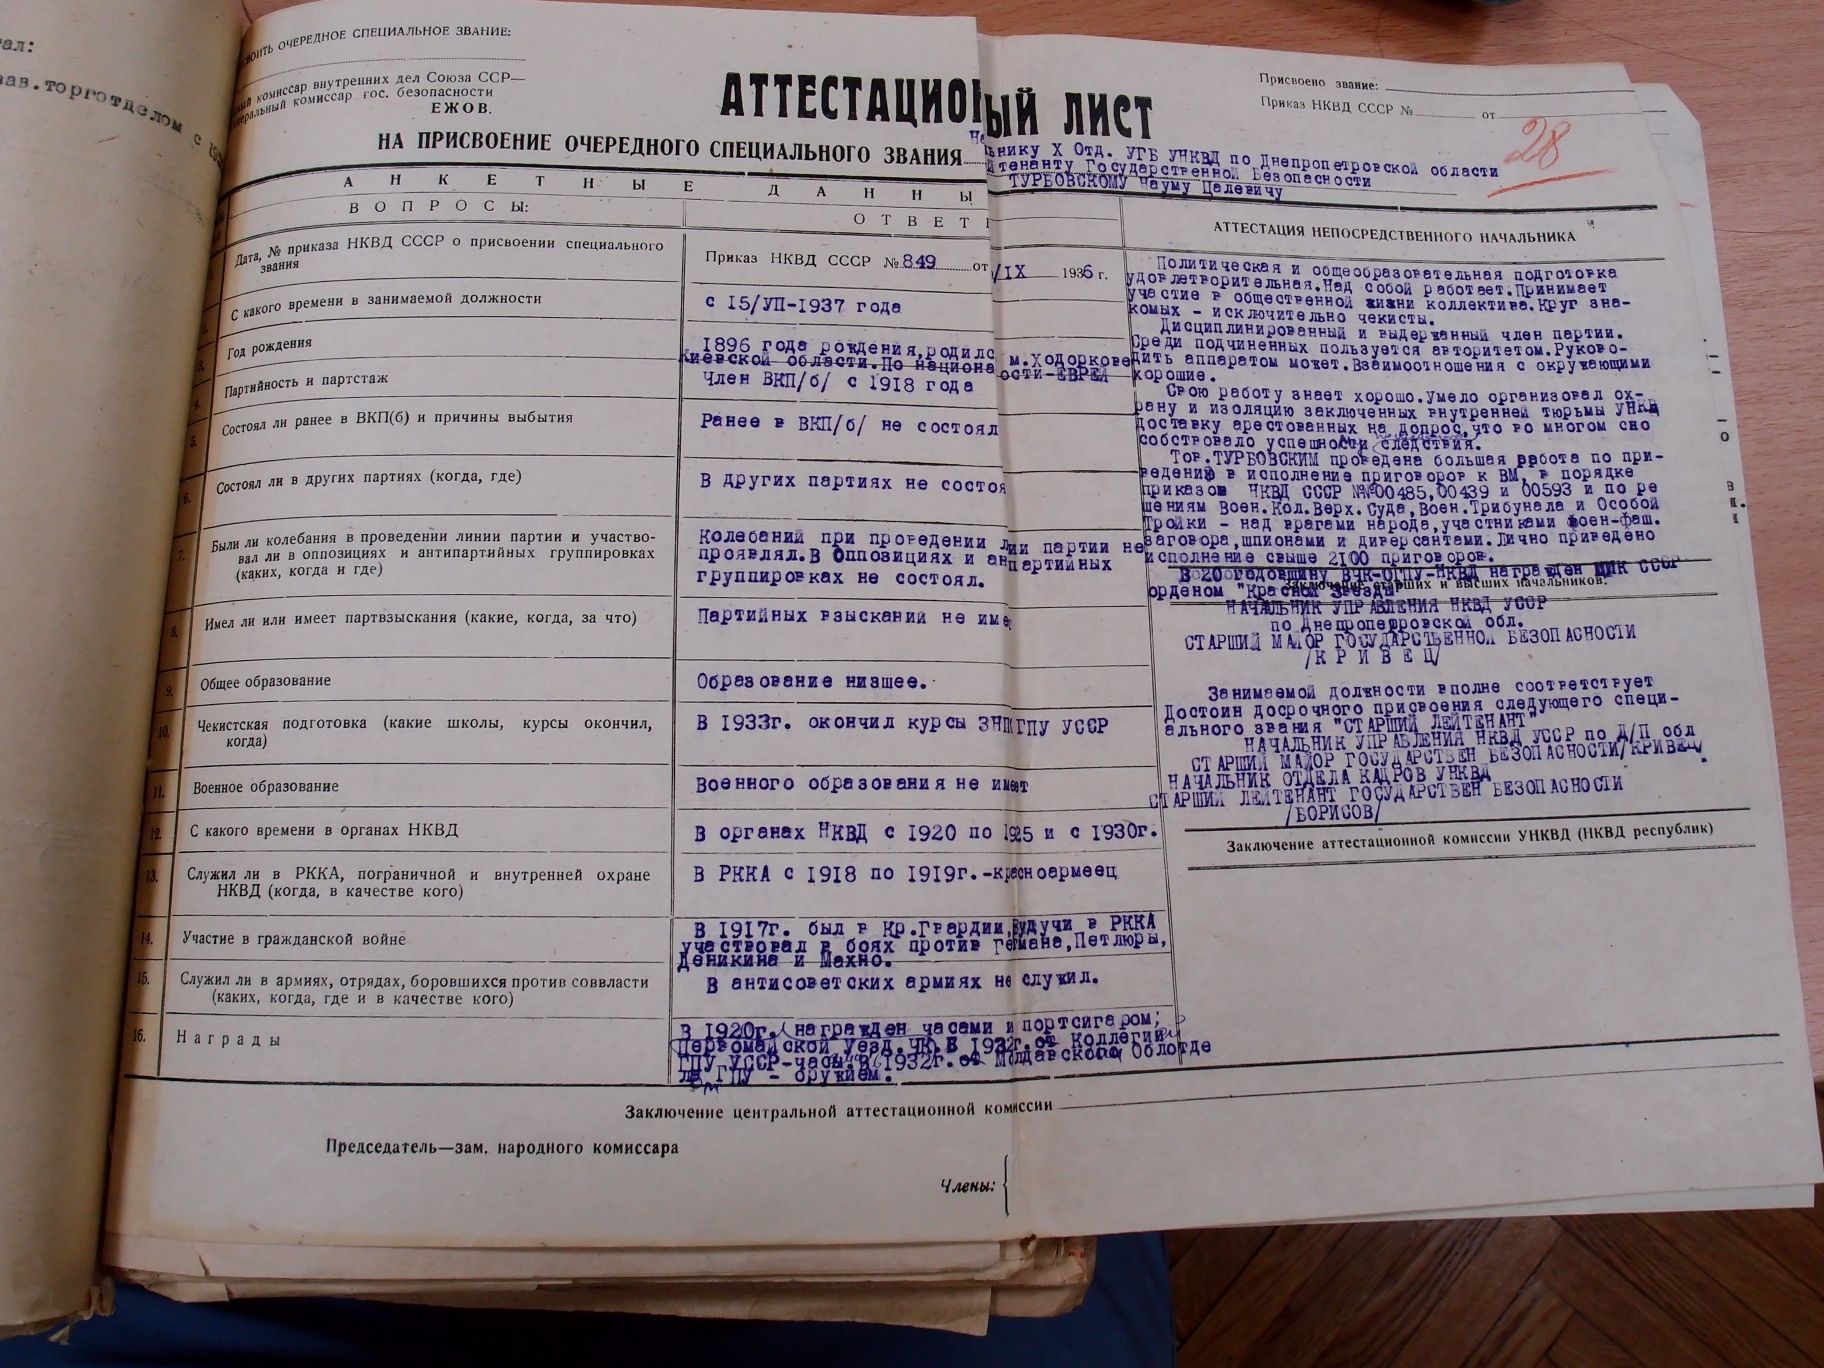 тал:
зав.торготделом с 19
ВОИТЬ ОЧЕРЕДНОЕ СПЕЦИАЛЬНОЕ ЗВАНИЕ:
комиссар внутренних дел Союза ССР—
комиссар гос. безопасности
ЕЖОВ.
Присвоено звание:
Приказ НКВД СССР № от
28
АТТЕСТАЦИОННЫЙ ЛИСТ
НА ПРИСВОЕНИЕ ОЧЕРЕДНОГО СПЕЦИАЛЬНОГО ЗВАНИЯ
ьнику X Отд. УГБ УНКВД по Днепропетровской области
йтенанту Государственной Безопасности
ТУРБОВСКОМУ Науму Цалевичу
АНКЕТНЫЕ ДАННЫ
ВОПРОСЫ:
ОТВЕТ
Дата, № приказа НКВД СССР о присвоении специального
звания
Приказ НКВД СССР № 849 от /IX 1936 г.
С какого времени в занимаемой должности
с 15/УП-1937 года
3.
Год рождения
1896 года рождения,родилс м.Ходоркове
Киевской области.По национа ости-ЕВРЕЙ
4.
Партийность и партстаж
Член ВКП/б/ с 1918 года
5.
Состоял ли ранее в ВКП(б) и причины выбытия
Ранее в ВКП/б/ не состоял
6.
Состоял ли в других партиях (когда, где)
В других партиях не состоя
7.
Были ли колебания в проведении линии партии и участво-
вал ли в оппозициях и антипартийных группировках
(каких, когда и где)
Колебаний при проведении линии партии не
проявлял.В Оппозициях и ан партийных
группировках не состоял.
8.
Имел ли или имеет партвзыскания (какие, когда, за что)
Партийных взысканий не име
9.
Общее образование
Образование низшее.
10.
Чекистская подготовка (какие школы, курсы окончил,
когда)
В 1933г. окончил курсы ГПУ УССР
11.
Военное образование
Военного образования не имеет
12.
С какого времени в органах НКВД
В органах НКВД с 1920 по 1925 и с 1930г.
13.
Служил ли в РККА, пограничной и внутренней охране
НКВД (когда, в качестве кого)
В РККА с 1918 по 1919г.-красноармеец
14.
Участие в гражданской войне
В 1917г. был в Кр.Гвардии,Будучи в РККА
участвовал в боях против Гетмана,Петлюры,
Деникина и Махно.
15.
Служил ли в армиях, отрядах, боровшихся против соввласти
(каких, когда, где и в качестве кого)
В антисоветских армиях не служил.
16.
Награды
В 1920г. награжден часами и портсигаром;
Первомайской уезд.ЧК.В 1932г.от Коллегии
ГПУ УССР-часы.В 1932г.от Молдавской Облотде
ла ГПУ - оружием.
АТТЕСТАЦИЯ НЕПОСРЕДСТВЕННОГО НАЧАЛЬНИКА
Политическая и общеобразовательная подготовка
удовлетворительная.Над собой работает.Принимает
участие в общественной жизни коллектива.Круг зна-
комых - исключительно чекисты.
Дисциплинированный и выдержанный член партии.
Среди подчиненных пользуется авторитетом.Руково-
дить аппаратом может.Взаимоотношения с окружающими
хорошие.
Свою работу знает хорошо.Умело организовал ох-
рану и изоляцию заключенных внутренней тюрьмы УНКВД
доставку арестованных на допрос,что во многом спо
собствовало успешности следствия.
Тов.ТУРБОВСКИМ проведена большая работа по при-
ведению в исполнение приговоров к ВМ, в порядке
приказов НКВД СССР №№00485,00439 и 00593 и по ре
шениям Воен.Кол.Верх.Суда,Воен.Трибунала и Особой
Тройки - над врагами народа,участниками воен-фаш.
заговора,шпионами и диверсантами.Лично приведено
исполнение свыше 2100 приговоров.
В 20 годовщину ВЧК-ОГПУ-НКВД награжден ЦИК СССР
Заключение старших и высших начальников:
орденом "Красной Звезды"
НАЧАЛЬНИК УПРАВЛЕНИЯ НКВД УССР
по Днепропетровской обл.
СТАРШИЙ МАЙОР ГОСУДАРСТВЕННОЙ БЕЗОПАСНОСТИ
/КРИВЕЦ/
Занимаемой должности вполне соответствует
Достоин досрочного присвоения следующего специ-
ального звания "СТАРШИЙ ЛЕЙТЕНАНТ"
НАЧАЛЬНИК УПРАВЛЕНИЯ НКВД УССР по Д/П обл
СТАРШИЙ МАЙОР ГОСУДАРСТВЕН БЕЗОПАСНОСТИ/КРИВЕЦ/
НАЧАЛЬНИК ОТДЕЛА КАДРОВ УНКВД
СТАРШИЙ ЛЕЙТЕНАНТ ГОСУДАРСТВЕН БЕЗОПАСНОСТИ
/БОРИСОВ/
Заключение аттестационной комиссии УНКВД (НКВД республик)
Заключение центральной аттестационной комиссии
Председатель—зам. народного комиссара
Члены: